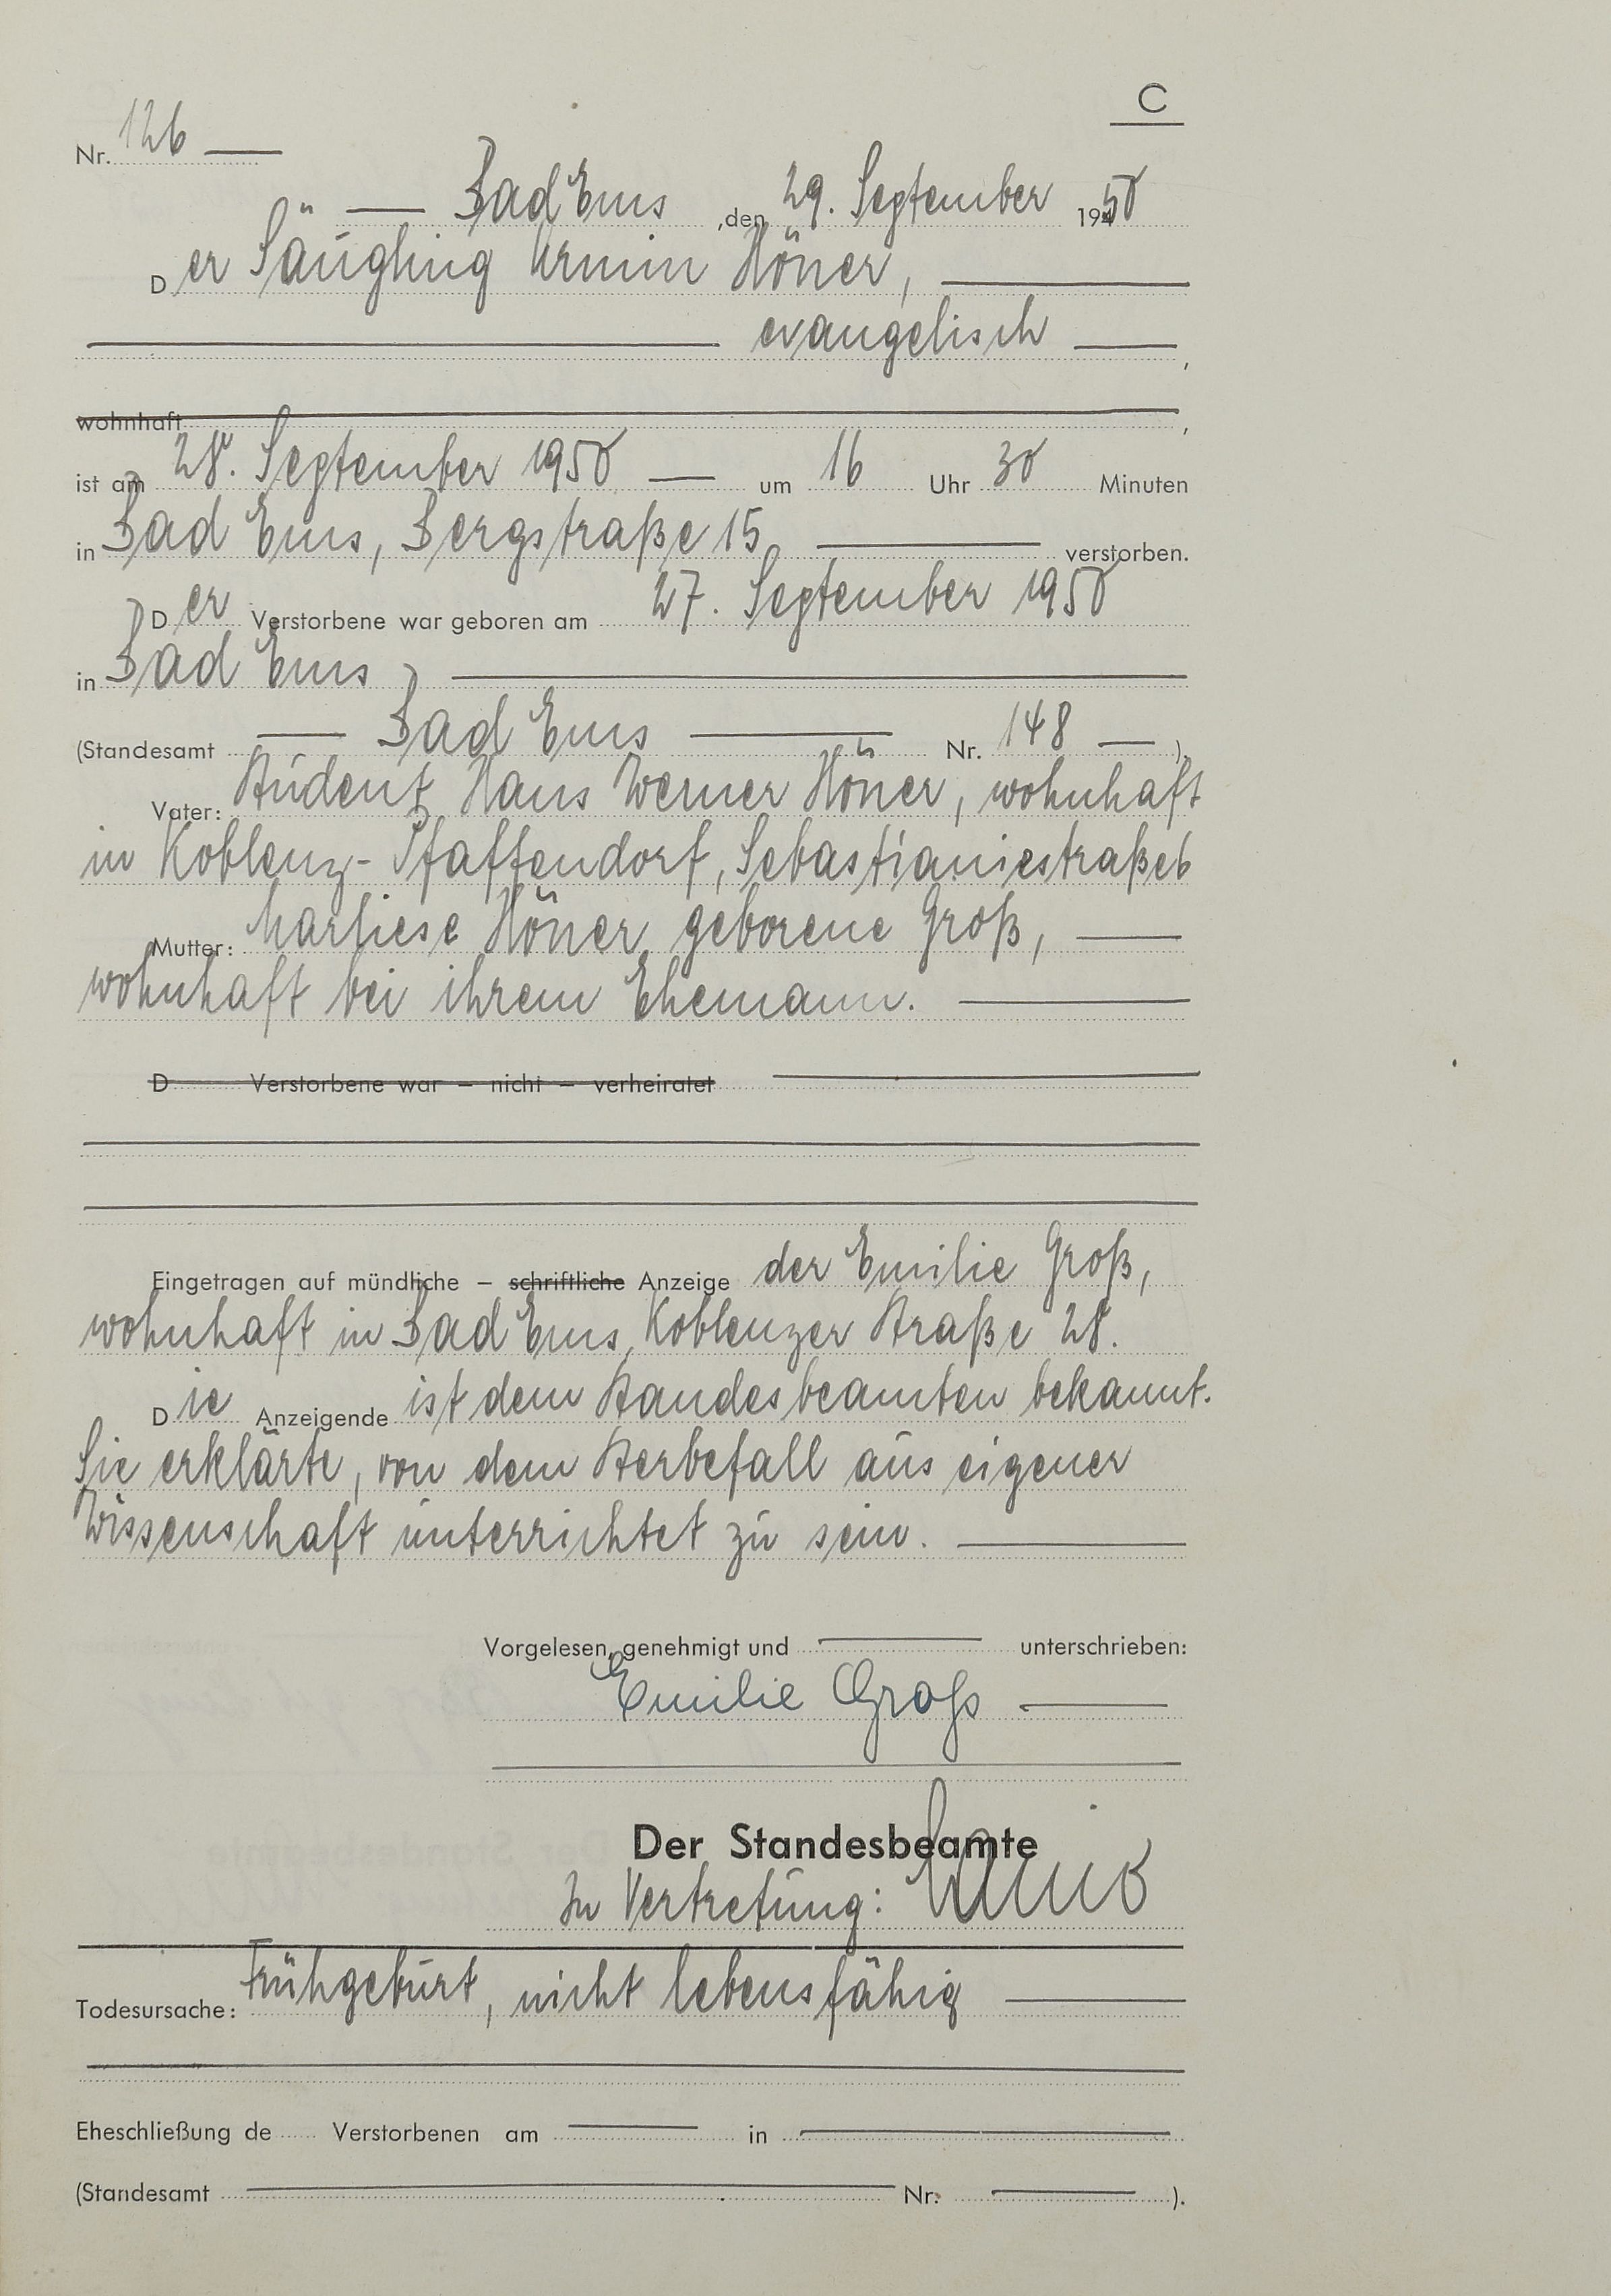 C
Nr. 126 —
— Bad Ems, den 29. September 1950
Der Säugling Armin Höner, —
— evangelisch —,
wohnhaft —,
ist am 28. September 1950 — um 16 Uhr 30 Minuten
in Bad Ems, Bergstraße 15 — verstorben.
Der Verstorbene war geboren am 27. September 1950
in Bad Ems —
(Standesamt — Bad Ems — Nr. 148 —).
Vater: Student Hans Werner Höner, wohnhaft
in Koblenz-Pfaffendorf, Sebastianiestraße 6
Mutter: Marliese Höner geborene Groß, —
wohnhaft bei ihrem Ehemann. —
D Verstorbene war – nicht – verheiratet —
Eingetragen auf mündliche – schriftliche Anzeige der Emilie Groß,
wohnhaft in Bad Ems, Koblenzer Straße 28.
Die Anzeigende ist dem Standesbeamten bekannt.
Sie erklärte, von dem Sterbefall aus eigener
Wissenschaft unterrichtet zu sein. —
Vorgelesen, genehmigt und — unterschrieben:
Emilie Groß —
Der Standesbeamte
In Vertretung:
Todesursache: Frühgeburt, nicht lebensfähig —
Eheschließung de Verstorbenen am — in —
(Standesamt — Nr. —).